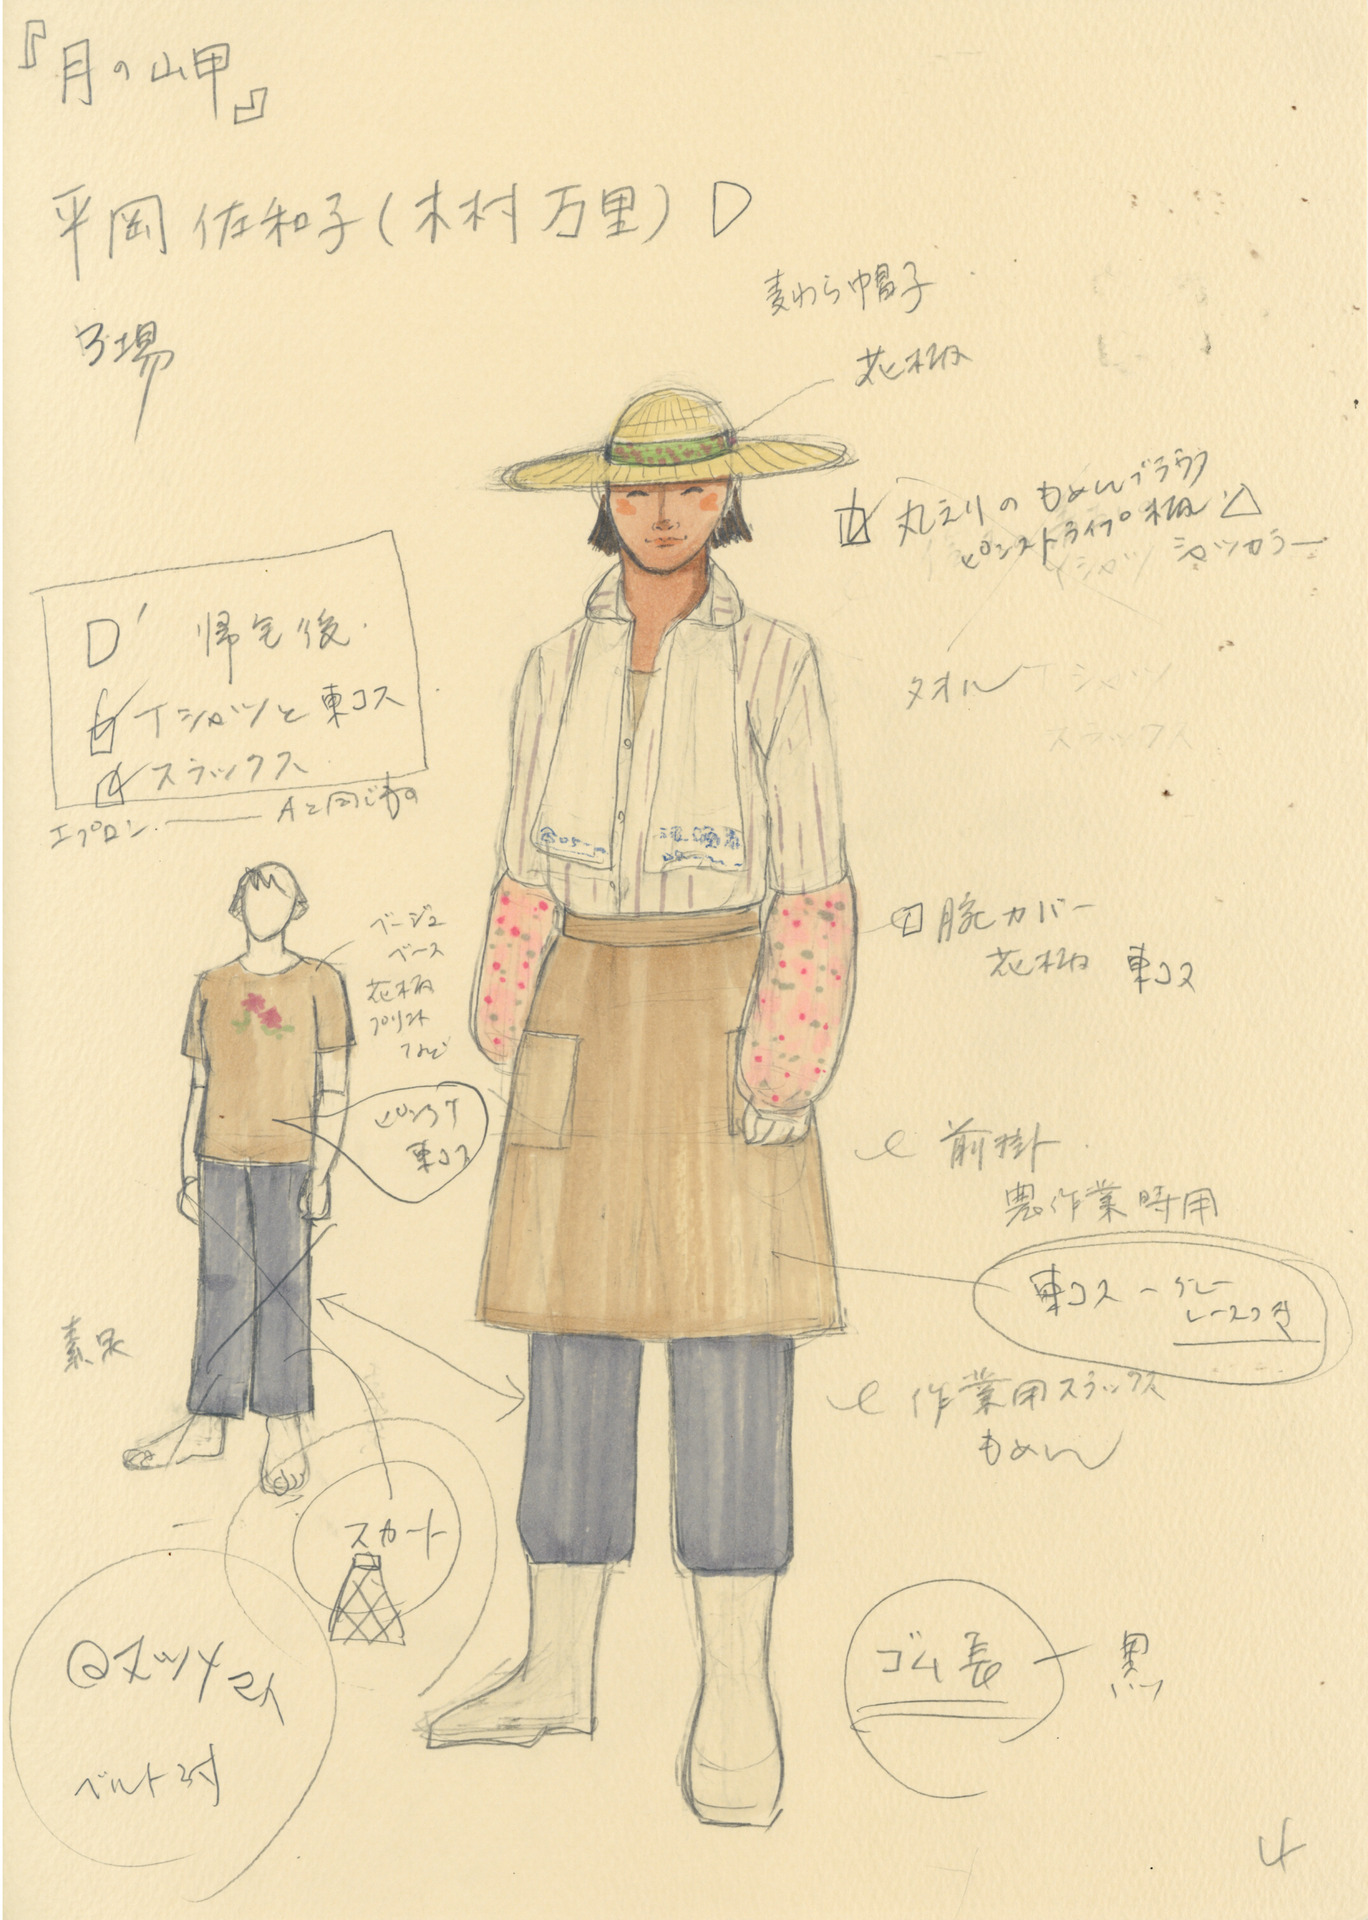 『月の岬』
平岡 佐和子(木村 万里) D
3場
麦わら帽子
花柄
丸えりの もめんブラウス
ピンストライプ柄
シャツカラー
タオル
Tシャツ
スラックス
D' 帰宅後
Tシャツと東コス
スラックス
エプロン. Aと同じもの
ベージュ
ベース
花柄
プリント
など
ピンク?
東コス
腕カバー
花柄 東コス
前掛
農作業時用
東コス - グレー
レースつき
作業用スラックス
もめん
素足
スカート
ベルト
ゴム長
黒
4